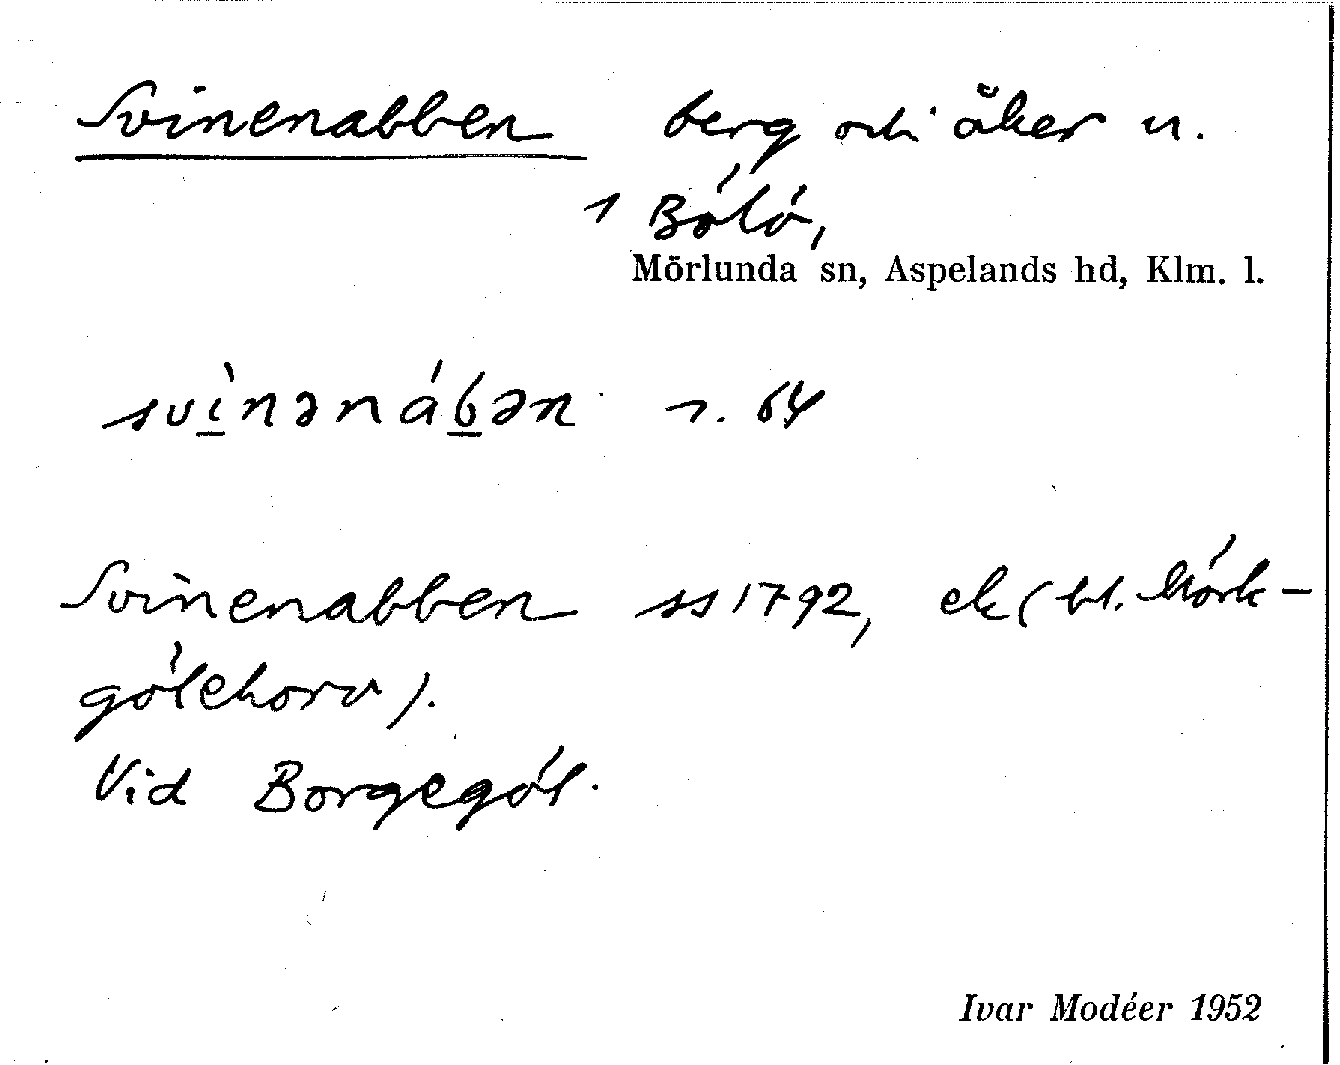 Svinenabben berg och åker u.
1 Bóló,
Mörlunda sn, Aspelands hd, Klm. l.
svìnənábən r. 64
Svinenabben ss 1792, ek (bl. Mórk-
gólehorv).
Vid Borgegól.
Ivar Modéer 1952